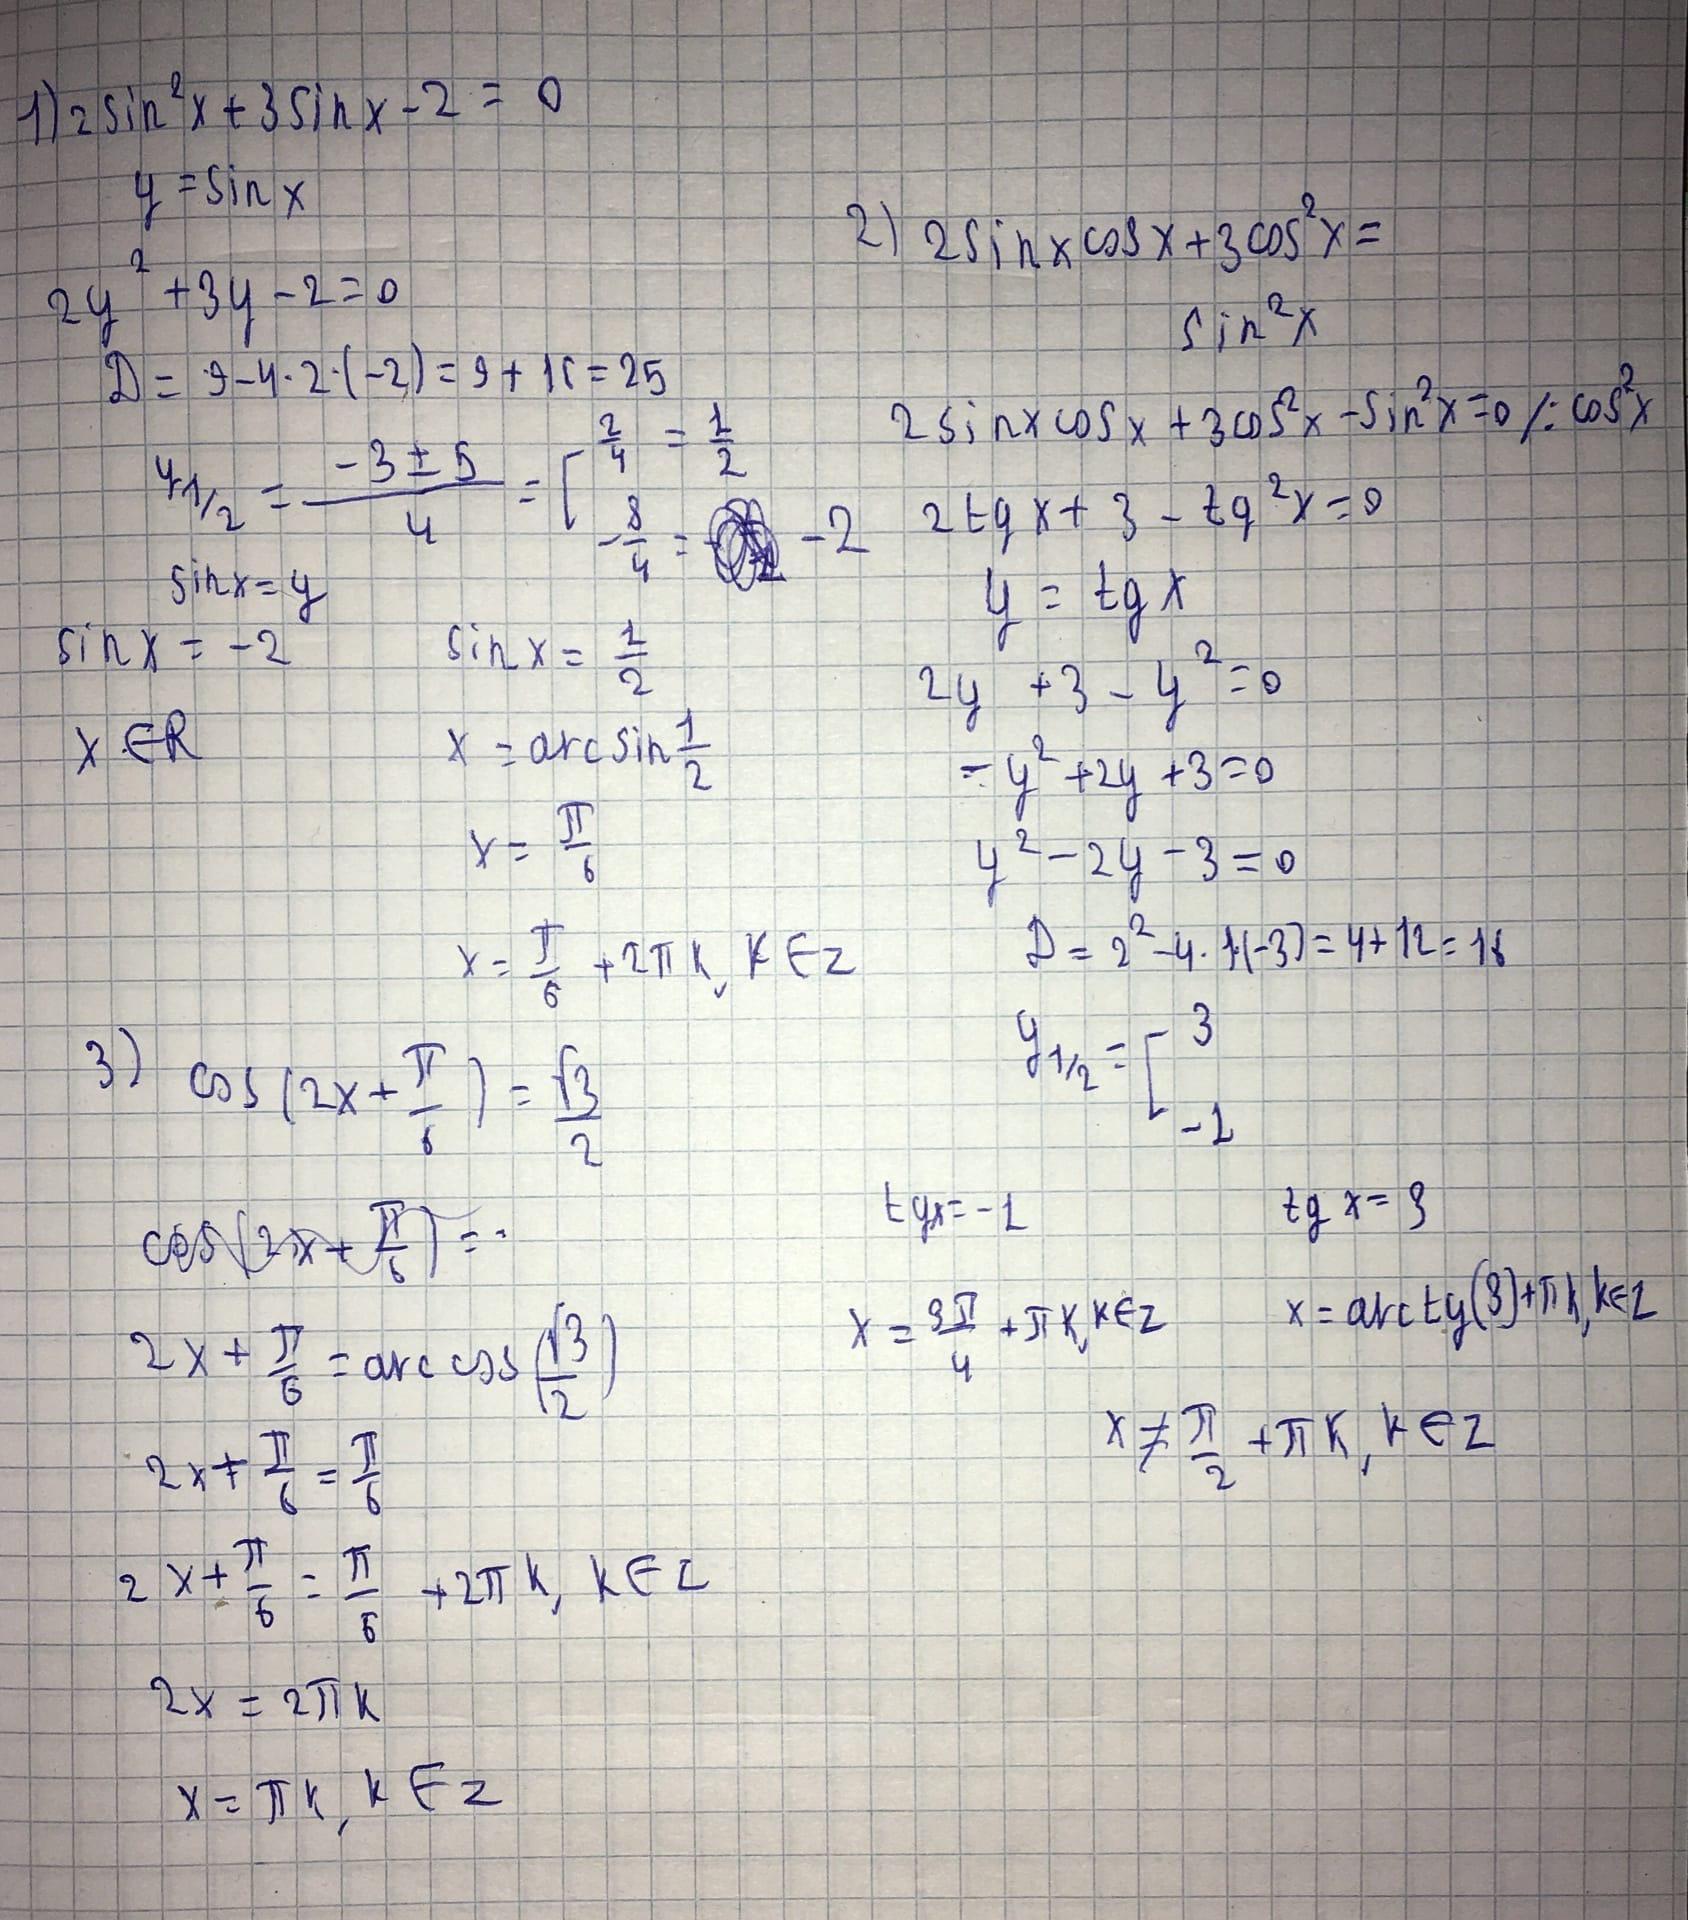 1) 2sin²x + 3sinx - 2 = 0
y = sinx
2y² + 3y - 2 = 0
D = 9 - 4·2·(-2) = 9 + 16 = 25
y1/2 = (-3 ± 5)/4 = [ 2/4 = 1/2
-8/4 = -2
sinx = y
sinx = -2
x ∈ R
sinx = 1/2
x = arcsin 1/2
x = π/6
x = π/6 + 2πk, k ∈ z
2) 2sinxcosx + 3cos²x =
sin²x
2sinxcosx + 3cos²x - sin²x = 0 /: cos²x
2tgx + 3 - tg²x = 0
y = tgx
2y + 3 - y² = 0
-y² + 2y + 3 = 0
y² - 2y - 3 = 0
D = 2² - 4·1·(-3) = 4 + 12 = 16
y1/2 = [ 3
-1
tgx = -1
x = 3π/4 + πk, k ∈ z
tgx = 3
x = arctg(3) + πk, k ∈ z
x ≠ π/2 + πk, k ∈ z
3) cos(2x + π/6) = √3/2
cos(2x + π/6) =
2x + π/6 = arccos(√3/2)
2x + π/6 = π/6
2x + π/6 = π/6 + 2πk, k ∈ z
2x = 2πk
x = πk, k ∈ z